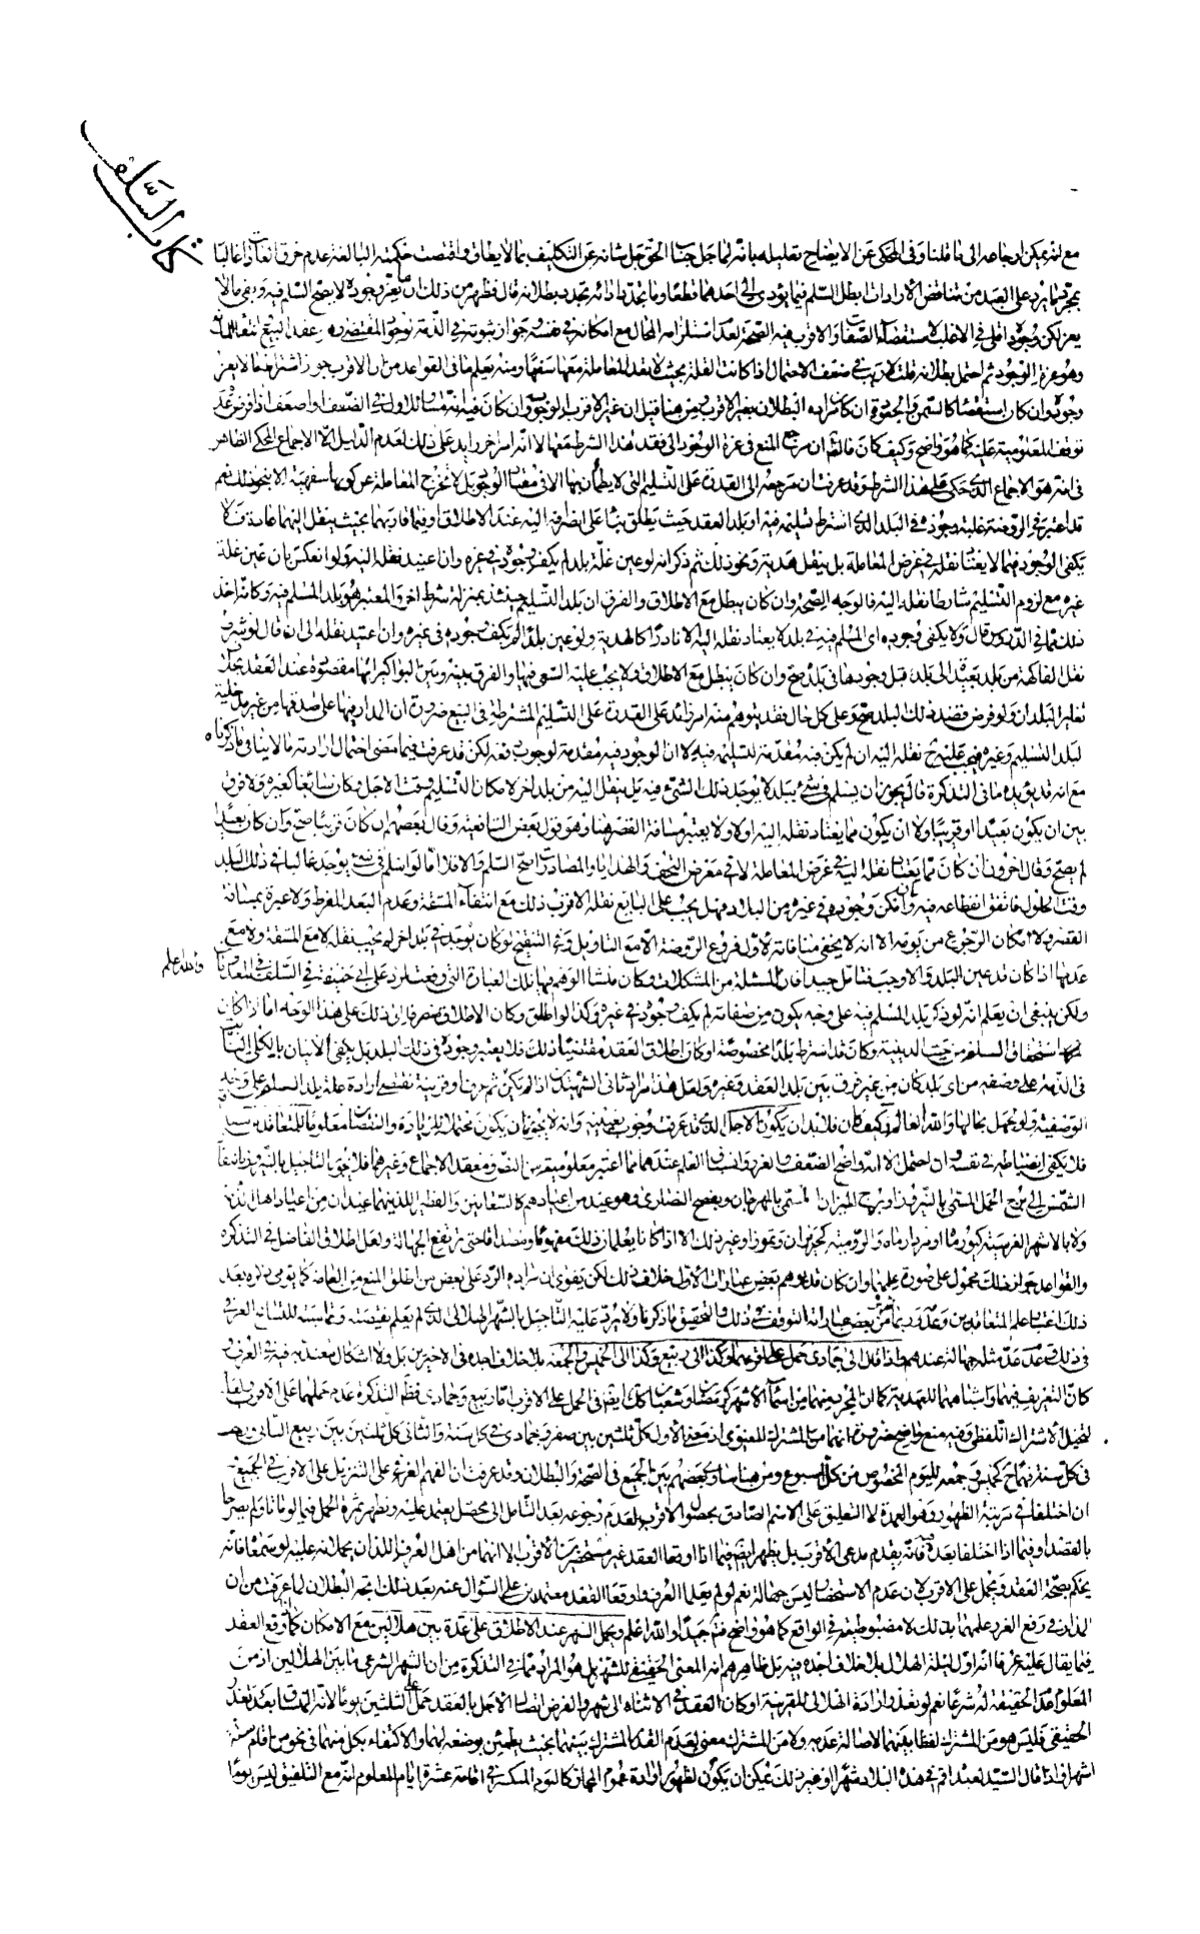 كتاب السلف
مع انه يمكن ارجاعه الى ما قلنا وفى المحكى عن الايضاح تعليله بانه لما جل جناب الحق جل شانه عن التكليف بما لا يطاق واقتضت حكمته البالغة عدم خرق العادات غالبا
بمجرد ما يرد على العبد من تناقض الارادات ابطل السلم فيما يؤدى الى احدهما قطعا وما يتجدد باذائه تجدد بطلانه قال فظهر من ذلك ان ما يعز وجوده لا يصح السلم فيه وبقى ما لا
يعز لكن وجوده اقلى فى الاغلب لاستقصاء الصفات والاقرب فيه الصحة لعدم استلزامه المحال مع امكانه فى نفسه وجواز ثبوته فى الذمة لوجود المقتضى وهو عقد البيع
وهو عزة الوجود ثم احتمل بطلانه قلت لا ريب فى ضعف الاحتمال اذا كانت القلة بحيث لا يعد المعاملة معها سفها ومنه يعلم ما فى القواعد من ان الاقرب جواز اشتراط ما لا يعز
وجوده وان كان استقصاء كالسمن والجعودة ان كان مراده البطلان بغير الاقرب من هنا قيل ان غير الاقرب الوجوب وان كان فيه انه مساو للاول فى الضعف او اضعف اذا فرض عدم
توقف المعلومية عليه كما هو واضح وكيف كان فالظاهر ان مرجع المنع فى عزة الوجود الى فقد هذا الشرط معها لا انه امر اخر زايد على ذلك لعدم الدليل الا الاجماع المحكى الظاهر
فى انه هو الاجماع الذى حكى على هذا الشرط وقد عرفت ان مرجعه الى القدرة على التسليم التى لا يطمأن بها الا فى مقبات الوجود بل لا تخرج المعاملة عن كونها سفهية الا بنحو ذلك نعم
قد اعتبر فى الروضة غلبة وجوده فى البلد الذى اشترط تسليمه فيه او بلد العقد حيث يطلق بناء على انصرافه اليه عند الاطلاق او فيما قاربهما بحيث ينقل اليهما عادة ولا
يكفى الوجود فيما لا يعتاد نقله فى غرض المعاملة بل ينقل هدية ونحو ذلك ثم ذكر انه لو عين غلة بلد لم يكف وجوده فى غيره وان اعتيد نقله اليه ولو انعكس بان عين غلة
غيره مع لزوم التسليم شارطا نقله اليه فالوجه الصحة وان كان يبطل مع الاطلاق والفرق ان بلد التسليم حينئذ بمنزلة شرط اخر والمعتبر هو بلد المسلم فيه وكانه اخذ
ذلك مما فى الدروس قال ولا يكفى وجوده اى المسلم فيه فى بلد لا يعتاد نقله اليه الا نادرا كالهدية ولو عين بلدا لم يكف وجوده فى غيره وان اعتيد نقله الى ان قال لو شرط
نقل الفاكهة من بلد بعيد الى بلده قبل وجودها فى بلده صح وان كان يبطل مع الاطلاق ولا يجب عليه السعى فيها والفرق بينه وبين البواكير انها مقصودة عند العقد بخلاف
تغاير البلدان ولو فرض قصد ذلك البلد صح وعلى كل حال فقد يتوهم منه امر زائد على القدرة على التسليم المشترطة فى البيع ضرورة ان المدار فيها على صدقها من غير مدخلية
لبلد التسليم وغيره فيجب عليه ح نقله اليه ان لم يكن فيه مقدمة لتسليمه فيه لا ان الوجود فيه مقدمة لوجوب دفعه لكن قد عرفت فيما مضى احتمال ارادته ما لا ينافى ما ذكرناه
مع انه قد يؤيده ما فى التذكرة قال يجوز ان يسلم فى شىء ببلد لا يوجد ذلك الشىء فيه بل ينقل اليه من بلد اخر لامكان التسليم وقت الاجل وكان سائغا كغيره ولا فرق
بين ان يكون بعيدا او قريبا ولا ان يكون مما يعتاد نقله اليه او لا ولا يعتبر مسافة القصر هنا وهو قول بعض الشافعية وقال بعضهم ان كان قريبا صح وان كان بعيدا
لم يصح وقال اخرون ان كان مما يعتاد نقله اليه فى غرض المعاملة لا فى معرض التحف والهدايا والمصادرات صح السلم والا فلا اما لو اسلم فى شىء يوجد غالبا فى ذلك البلد
وقت الحلول فاتفق انقطاعه فيه وامكن وجوده فى غيره من البلاد فهل يجب على البايع نقله الاقرب ذلك مع انتفاء المشقة وعدم البعد المفرط ولا عبرة بمسافة
القصر ولا بامكان الرجوع من يومه الا انه لا يخفى منافاته لاول فروع الروضة الا مع التاويل وعن التنقيح لو كان يوجد فى بلد اخر لم يجب نقله لا مع المشقة ولا مع
عدمها اذا كان قد عين البلد والا وجب فتامل جيدا فان المسئلة من المشكلات وكان منشأ الوهم فيها تلك العبارة التى وقعت لرد على ابى حنيفة فى السلف والله اعلم
ولكن ينبغى ان يعلم انه لو ذكر بلد المسلم فيه على وجه يكون من صفاته لم يكف وجوده فى غيره وكذا لو اطلق وكان الاطلاق منصرفا الى ذلك على هذا الوجه اما اذا كان
استحقاق السلم من حيث المدينية وكان قد اشترط بلدا مخصوصة او كان اطلاق العقد مقتضيا ذلك فلا يعتبر وجوده فى ذلك البلد بل يكفى الاتيان بالكلى الثابت
فى الذمة على وصفه من اى بلد كان من غير فرق بين بلد العقد وغيره ولعل هذا مراد ثانى الشهيدين اذا لم يكن ثم عرف او قرينة تقتضى ارادة غلة بلد السلم على وجه
الوصفية ولو جهل بحالها والله العالم وكيف كان فلابد ان يكون الاجل الذى قد عرفت وجوب تعيينه وانه لا يجوز ان يكون محتملا للزيادة والنقصان معلوما للمتعاقدين
فلا يكفى انضباطه فى نفسه وان احتمل الا انه واضح الضعف والغرر وانتفاء العلم عندهما مما اعتبر معلوميته من النص ومعقد الاجماع وغيرهما فلا يجوز التاجيل بالنيروز بانتقال
الشمس الى برج الحمل المسمى بالنيروز او برج الميزان المسمى بالمهرجان وبفصح النصارى وهو عيد من اعيادهم كالسعانين والفطير اللذين هما عيدان من اعياد اهل الذمة
ولا بالاشهر الفرسية كخورماه او مرداد ماه والرومية كحزيران وتموز او غير ذلك الا اذا كانا يعلمان ذلك مفهوما ومصداقا حتى يرتفع الجهالة ولعل اطلاق الفاضل فى التذكرة
والقواعد جواز ذلك محمول على صورة علمهما وان كان قد يوهم بعض عبارات الاول خلاف ذلك لكن يقوى ان مراده الرد على بعض من اطلق المنع من العامة كما يومى ذكره بعد
ذلك اعتبار علم المتعاقدين وعدد ربما من بعض عباراته التوقف فى ذلك والتحقيق ما ذكرنا ولا يرد عليه التاجيل بالشهر الهلالى الذى لم يعلم نقيصته وتماميته للتسامح العرفى
فى ذلك بعد عدم مثله جهالة عندهم واذا قال الى جمادى حمل على اقربهما وكذا الى ربيع وكذا الى الخميس والجمعة بلا خلاف اجده فى الاخيرين بل ولا اشكال يعتد به فيه فى العرف
كان التعريف فيهما وشبههما للعهدية كما ان المجرد منهما من اسماء الاشهر كرمضان وشعبان كذلك ايضا فى الحمل على الاقرب اما ربيع وجمادى فظاهر التذكرة عدم حملهما على الاقرب
لتخيل الاشتراك اللفظى وفيه منع واضح ضرورة انهما من المشترك المعنوى اذ معنى الاول كل ثلثين بين صفر وجمادى فى كل سنة والثانى كل ثلثين بين ربيع الثانى ورجب
فى كل سنة فهما ح كخميس وجمعة لليوم المخصوص من كل اسبوع ومن هنا ساوى بعضهم بين الجميع فى الصحة والبطلان وقد عرفت ان الفهم العرفى على التنزيل على الاقرب فى الجميع
ان اختلفا فى مرتبة الظهور وهو العمدة لا التعليق على الاسم الصادق بحصول الاقرب لعدم رجوعه بعد التامل الى محصل يعتمد عليه وتظهر ثمرة الحمل فيما لو ماتا ولم يصرحا
بالقصد وفيما اذا اختلفا بعده فانه يقدم مدعى الاقرب بل يظهر ايضا فيما اذا اوقعا العقد غير مستحضرين الاقرب الا انهما من اهل العرف اللذان يحملانه عليه لو سمعاه فانه
يحكم بصحة العقد ويحمل على الاقرب لان عدم الاستحضار ليس جهالة نعم لو لم يعلما العرف واوقعا العقد معتمدين على السؤال عنه بعد ذلك اتجه البطلان لما عرفت من ان
المدار فى رفع الغرر علمهما بذلك لا مضبوطيته فى الواقع كما هو واضح فتامل جيدا والله اعلم ويحمل الشهر عند الاطلاق على عدة بين هلالين مع الامكان كما اذا وقع العقد
فيما يقال عليه عرفا انه اول ليلة الهلال بلا خلاف اجده فيه بل ظاهرهم انه المعنى الحقيقى للشهر بل هو المراد مما فى التذكرة من ان الشهر الشرعى ما بين الهلالين اذ من
المعلوم عدم الحقيقة له شرعا نعم لو تعذر ارادة الهلالى للقرينة او كان العقد فى الاثناء الى شهر والغرض اتصال الاجل بالعقد حمل على الثلثين يوما لانه المتعارف بعد تعذر
الحقيقى فليس هو من المشترك لفظا بينهما لاصالة عدمه ولا من المشترك معنى لعدم القدر المشترك بينهما بحيث يطمئن بوضعه لهما والاكتفاء بكل منهما فى نحو من اقام ستة
اشهر او اذا قال السيد لعبده اقم فى هذه البلاد شهرا او غير ذلك يمكن ان يكون لظهور ارادة عموم المجاز كاليوم المنكسر فى اقامة عشرة ايام للمعلوم انه مع التلفيق ليس يوما